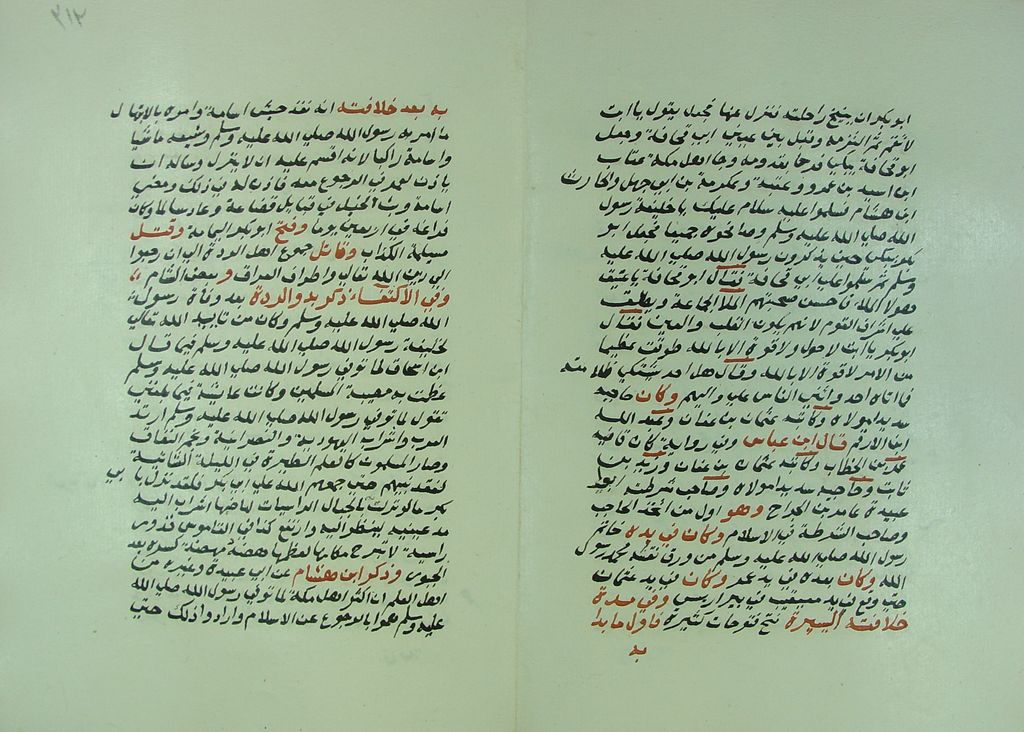 ابو بكر ان ينيخ راحلته فنزل عنها فجعل يقول يا ابت
لا تقم ثم التزمه وقبل بين عيني ابي قحافة وجعل
ابو قحافة يبكي فرحا بقدومه وجاء اهل مكة عتاب
ابن اسيد بن عمرو وعقبة وعكرمة بن ابي جهل والحارث
ابن هشام فسلموا عليه سلام عليك يا خليفة رسول
الله صلي الله عليه وسلم وصافحوه جميعا فجعل ابو
بكر يبكي حين يذكرون رسول الله صلي الله عليه
وسلم ثم سلموا علي ابي قحافة فقال ابو قحافة يا عتيق
هولا الملا فاحسن صحبتهم الملا الجماعة ويطلق
علي اشراف القوم لانهم يملون القلب والعين فقال
ابو بكر يا ابت لا حول ولا قوة الا بالله طوقت عظيما
من الامر لا قوة الا بالله وقال هل احد يشتكي ظلامته
فما اتاه احد واثني الناس علي واليهم وكان حاجبه
سديدا مولاه وكاتبه عثمان بن عفان وعبد الله
ابن الارقم قال ابن عباس وفي رواية كان قاضيه
عمر بن الخطاب وكاتبه عثمان بن عفان وزيد بن
ثابت وحاجبه سديدا مولاه وصاحب شرطته ابو
عبيدة عامر بن الجراح وهو اول من اتخذ الحاجب
وصاحب الشرطة في الاسلام وكان في يده خاتم
رسول الله صلي الله عليه وسلم من ورق نقشه محمد رسول
الله وكان بعده في يد عمر وكان في يد عثمان
حتي وقع في يد معيقيب في بير اريس وفي مدة
خلافته اليسيرة فتح فتوحات كثيرة فاول ما بدا
به
٣١٢
به بعد خلافته انه نفذ جيش اسامة وامره بالانتهال
ما امر به رسول الله صلي الله عليه وسلم وشيعه ماشيا
واسامة راكبا لانه اقسم عليه ان لا ينزل وساله ان
ياذن لعمر في الرجوع معه فاذن له في ذلك ومضي
اسامة وبث الخيل في قبايل قضاعة وعاد سالما وكان
فراغه في اربعين يوما وفتح ابو بكر اليمامة وقتل
مسيلمة الكذاب وقاتل جموع اهل الردة الي ان رجعوا
الي دين الله تعالي واطراف العراق وبعض الشام
وفي الاكتفاء ذكر بدو الردة بعد وفاة رسول
الله صلي الله عليه وسلم وكان من تاييد الله تعالي
لخليفة رسول الله صلي الله عليه وسلم فيها قال
ابن اسحاق لما توفي رسول الله صلي الله عليه وسلم
عظمت به مصيبة المسلمين وكانت عايشة فيما بلغني
تقول لما توفي رسول الله صلي الله عليه وسلم ارتد
العرب واشراب اليهودية والنصرانية ونجم النفاق
وصار المسلمون كالغنم المطيرة في الليلة الشاتية
لفقد نبيهم حتي جمعهم الله علي ابي بكر فلقد نزل بابي
بكر ما لو نزلت بالجبال الراسيات لهاضها اشراب اليه
مد عينيه ينظر اليه وارتفع كذا في القاموس
راسية لا تبرح مكانها لعظمها هضة مهيضة كسره بعد
الجبور وذكر ابن هشام عن ابي عبيدة وغيره من
اهل العلم ان اكثر اهل مكة لما توفي رسول الله صلي الله
عليه وسلم هموا بالرجوع عن الاسلام وارادوا ذلك حتي